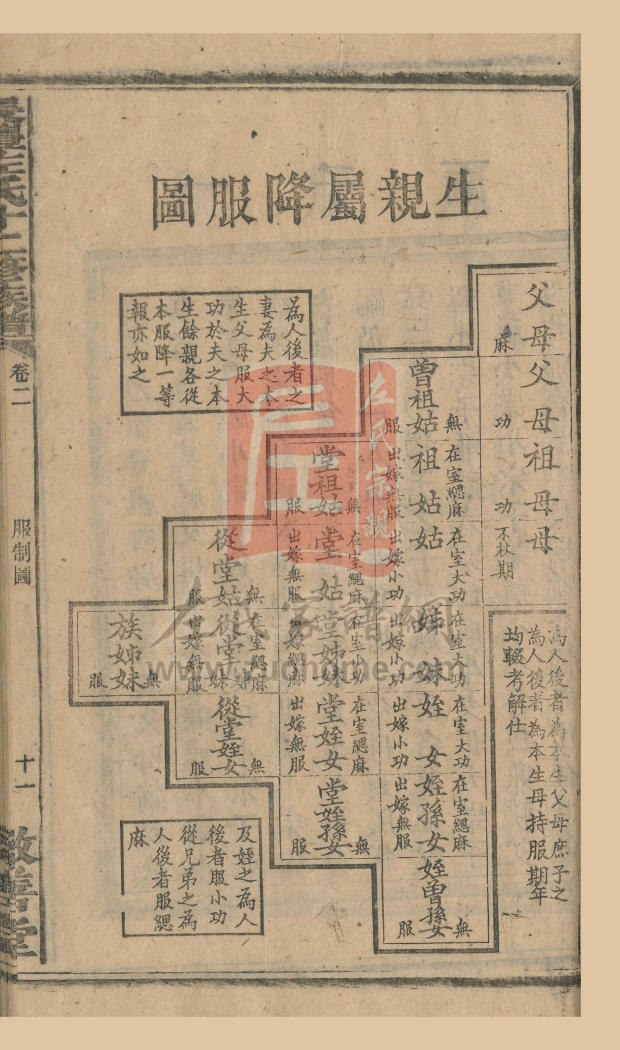 生親屬降服圖
父母
麻
父母
功
祖母
功
母
不杖期
為人後者為本生父母庶子之
為人後者為本生母持服期年
均輟考解仕
曾祖姑
無服
祖姑
在室緦麻
出嫁無服
姑
在室大功
出嫁小功
姊妹
在室大功
出嫁小功
姪女
在室大功
出嫁小功
姪孫女
在室緦麻
出嫁無服
姪曾孫女
無服
堂祖姑
無服
堂姑
在室緦麻
出嫁無服
堂姊妹
在室小功
出嫁緦麻
堂姪女
在室緦麻
出嫁無服
堂姪孫女
無服
從堂姑
無服
從堂姊妹
在室緦麻
出嫁無服
從堂姪女
無服
族姊妹
無服
為人後者之
妻為夫之本
生父母服大
功於夫之本
生餘親各從
本服降一等
報亦如之
及姪之為人
後者服小功
從兄弟之為
人後者服緦
麻
氏十二修族譜
卷二
服制圖
十一
敦善堂
左氏宗親
左氏家譜網
www.zuohome.com